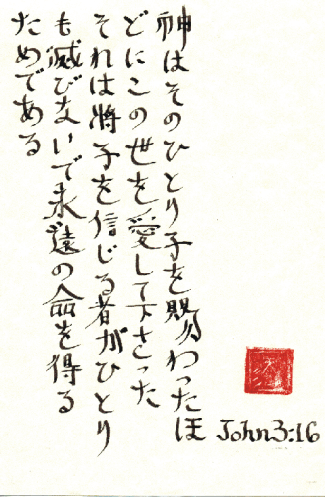 神はそのひとり子を賜わったほ
どにこの世を愛して下さった
それは将子を信じる者がひとり
も滅びないで永遠の命を得る
ためである
John3:16